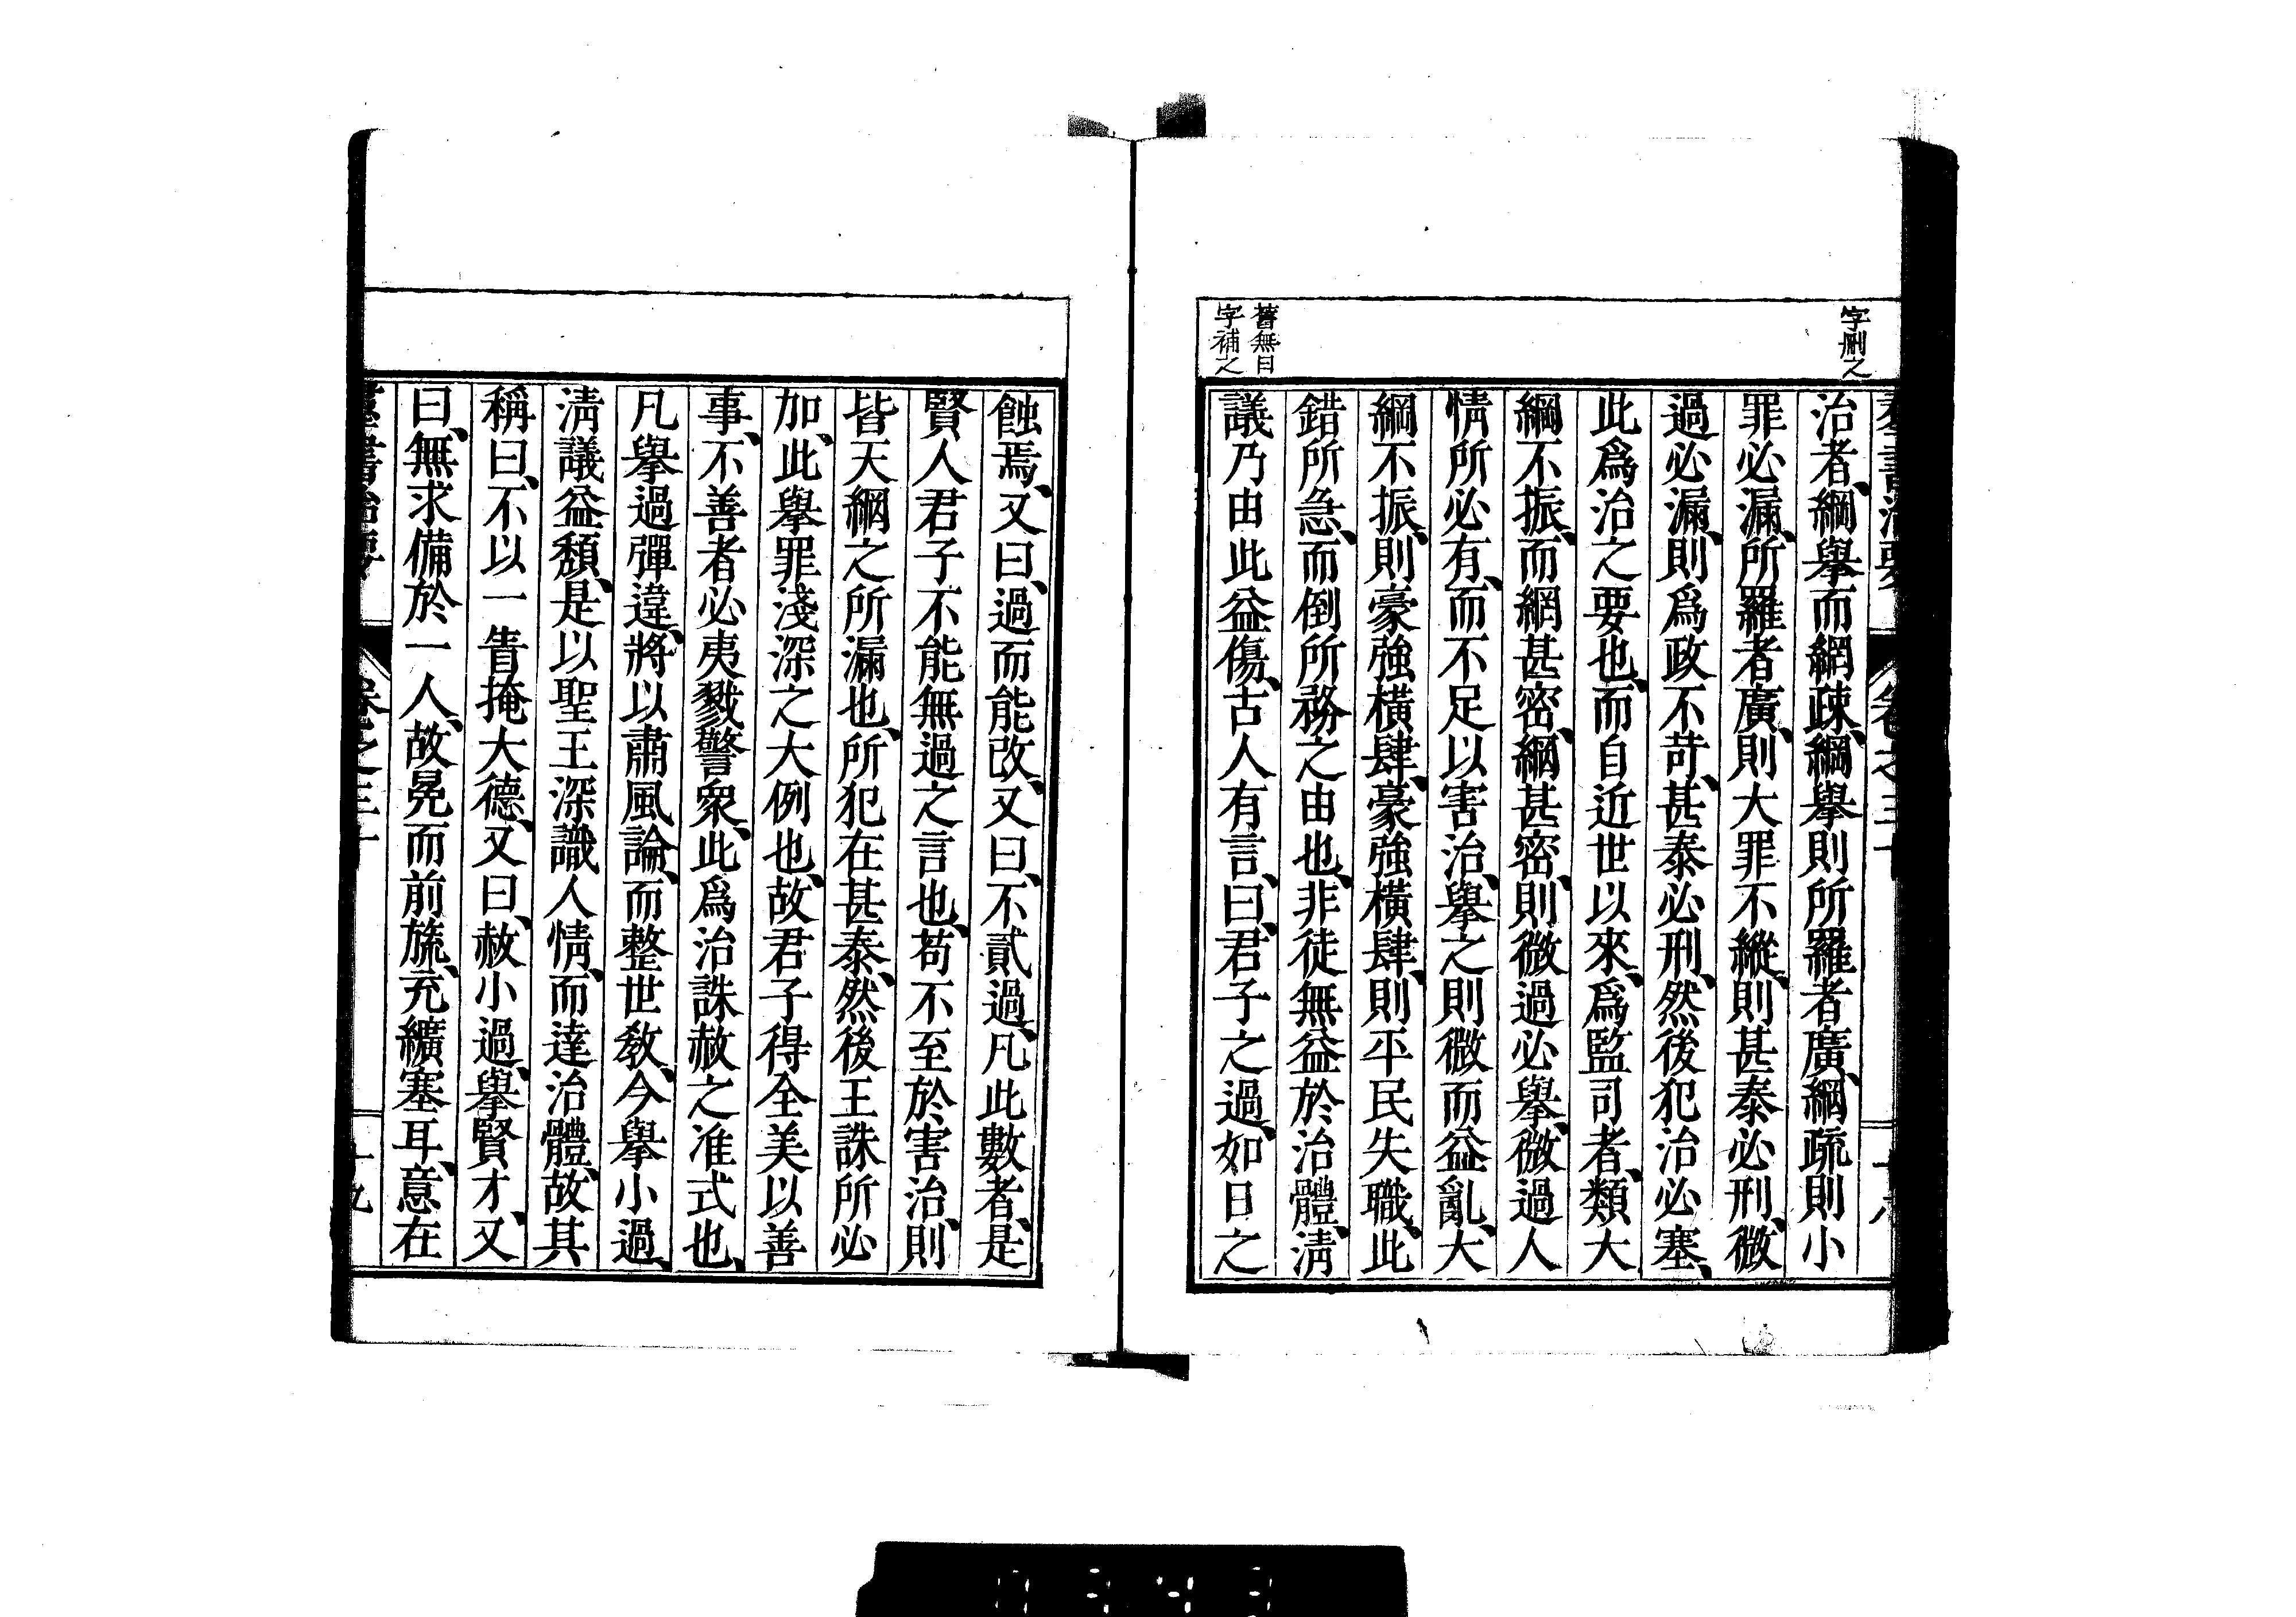 字刪之
舊無日
字補之
羣書治要
卷之三十
治者、綱擧而網疎、綱擧則所羅者廣、網疏則小
罪必漏、所羅者廣、則大罪不縱、則甚泰必刑、微
過必漏、則爲政不苛、甚泰必刑、然後犯治必塞、
此爲治之要也、而自近世以來、爲監司者、類大
綱不振、而網甚密、網甚密、則微過必擧、微過人
情所必有、而不足以害治、擧之則微而益亂、大
綱不振、則豪強橫肆、豪強橫肆、則平民失職、此
錯所急、而倒所務之由也、非徒無益於治體、淸
議乃由此益傷、古人有言、曰、君子之過、如日之
蝕焉、又曰、過而能改、又曰、不貳過、凡此數者、是
賢人君子不能無過之言也、苟不至於害治、則
皆天網之所漏也、所犯在甚泰、然後王誅所必
加、此擧罪淺深之大例也、故君子得全美以善
事、不善者必夷戮警衆、此爲治誅赦之准式也、
凡擧過彈違、將以肅風論、而整世敎、今擧小過、
淸議益頽、是以聖王深識人情、而達治體、故其
稱曰、不以一眚掩大德、又曰、赦小過、擧賢才、又
曰、無求備於一人、故冕而前旒、充纊塞耳、意在
羣書治要
卷之三十
十九